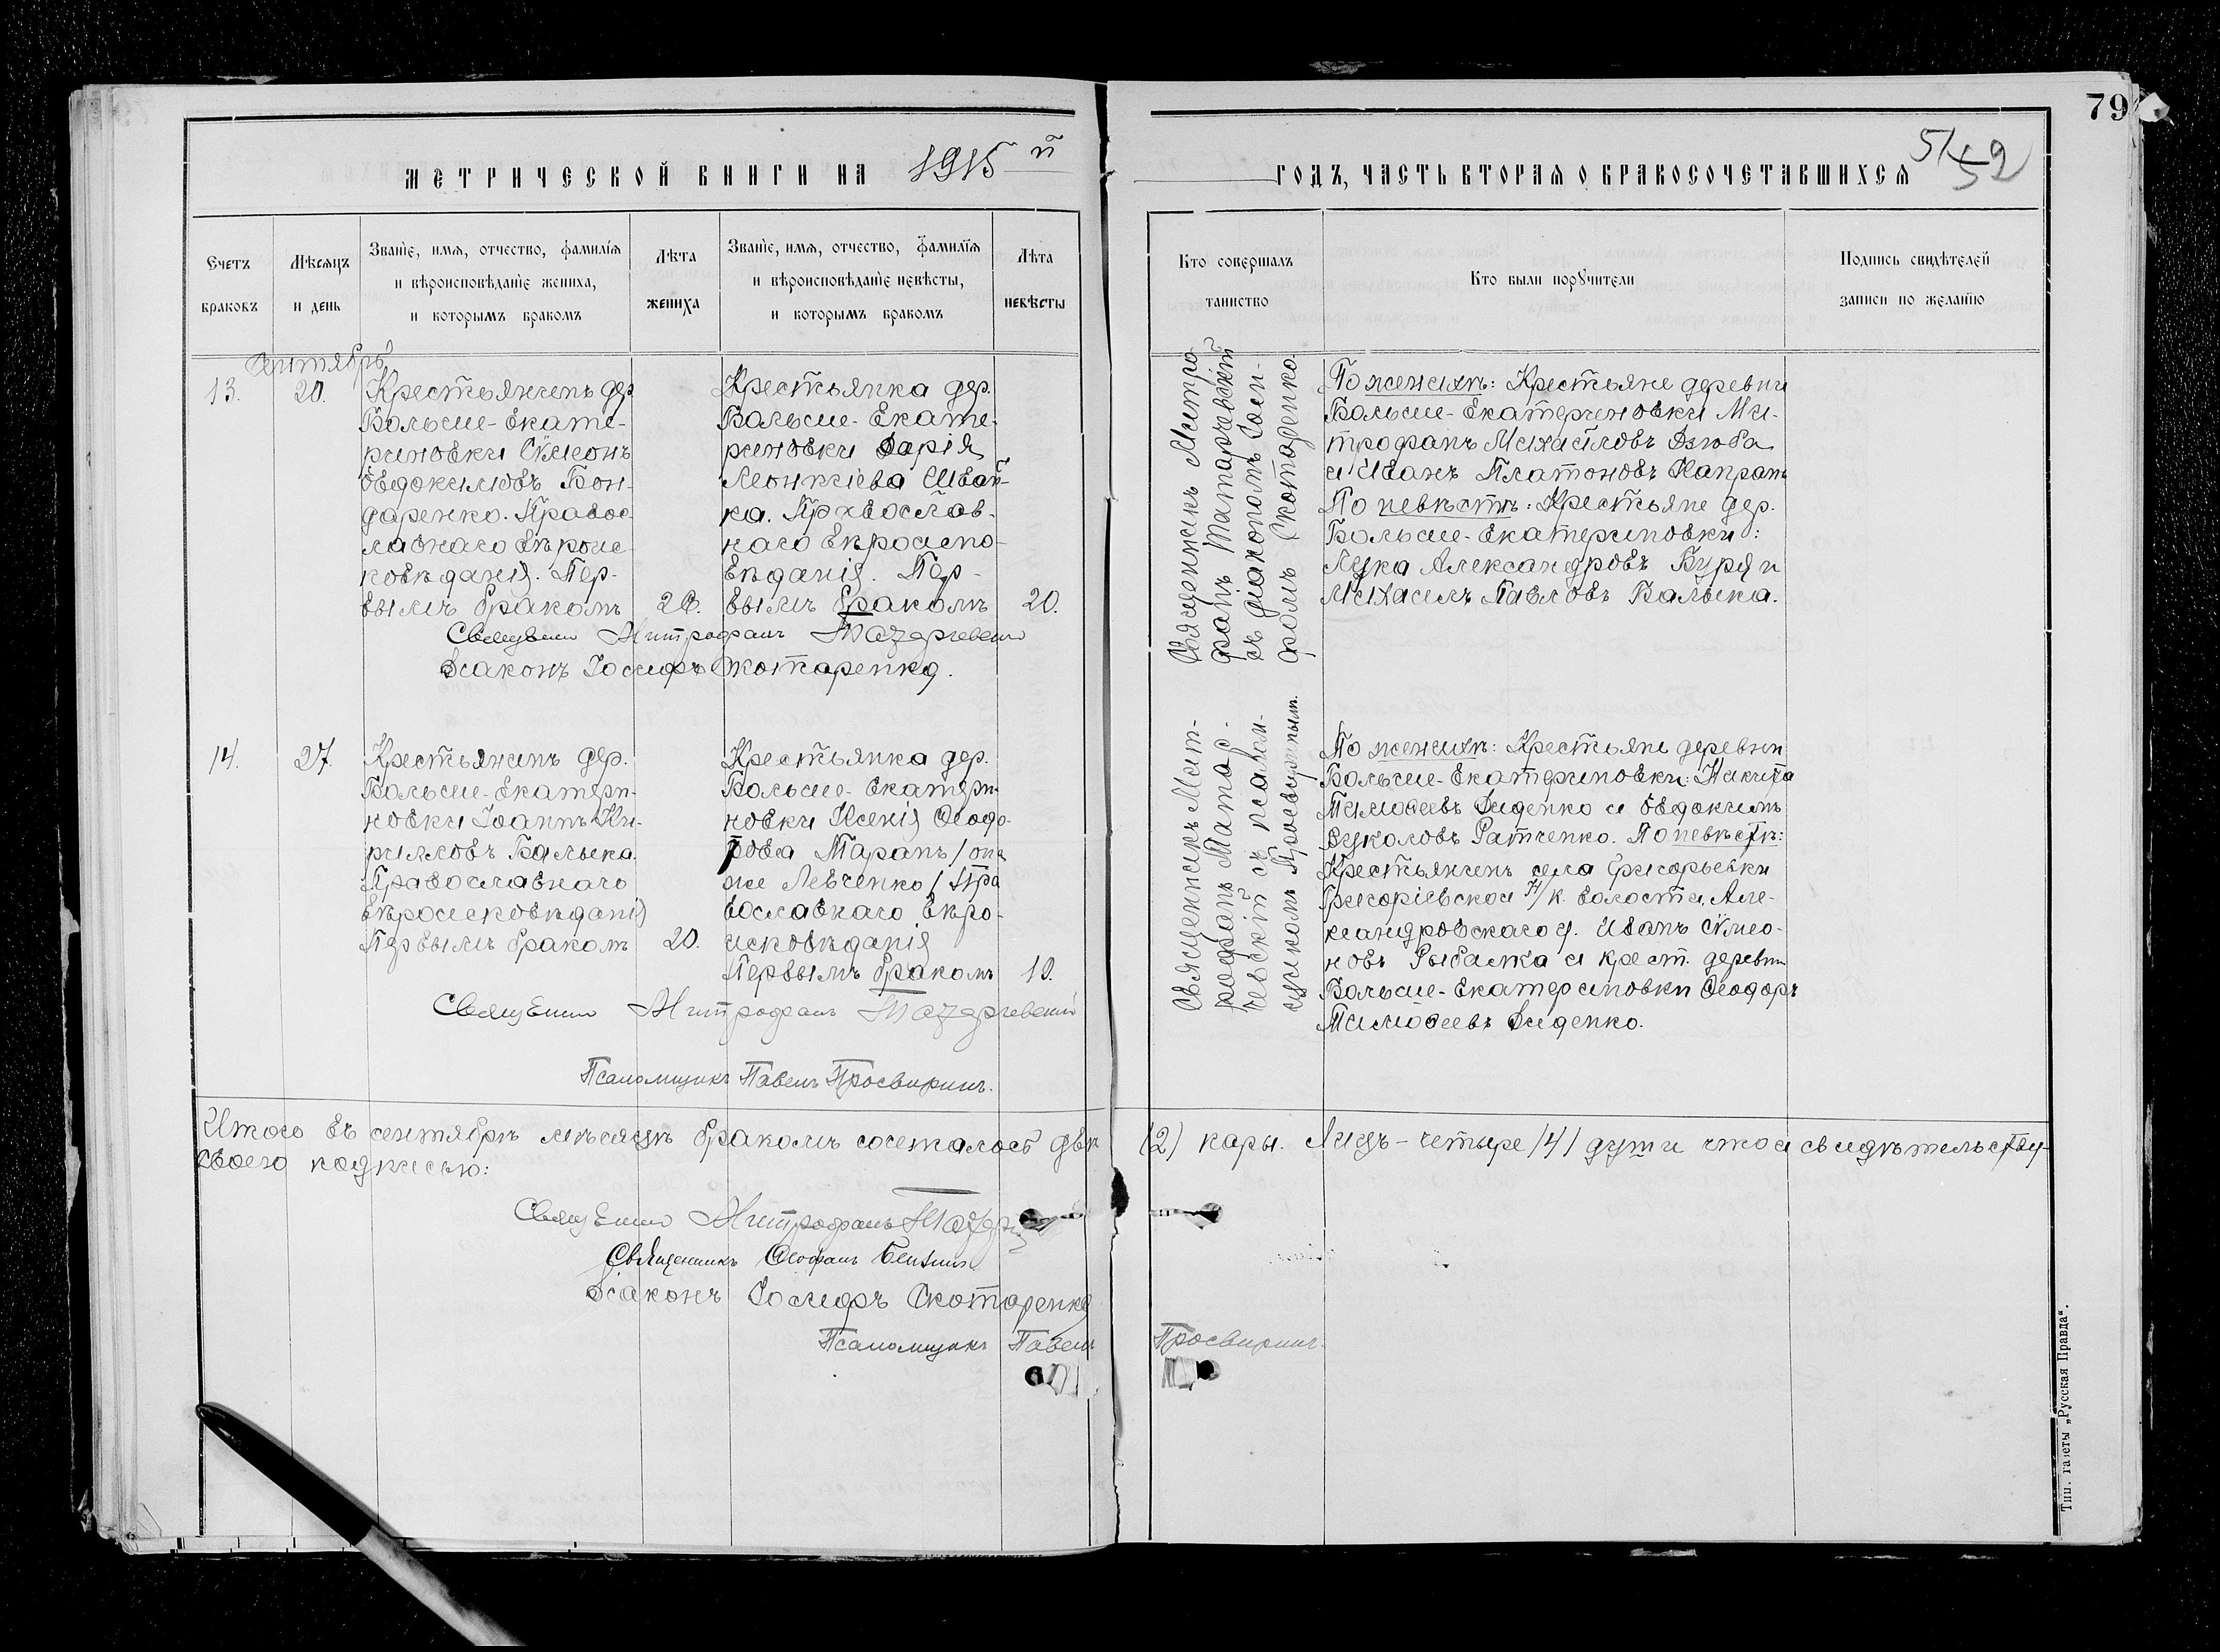 79
51
52
МЕТРИЧЕСКОЙ КНИГИ НА 1915 й
ГОДЪ, ЧАСТЬ ВТОРАЯ О БРАКОСОЧЕТАВШИХСЯ
Счетъ
браковъ
Мѣсяцъ
и день
Званїе, имя, отчество, фамилїя
и вѣроисповѣданїе жениха,
и которымъ бракомъ
Лѣта
жениха
Званїе, имя, отчество, фамилїя
и вѣроисповѣданїе невѣсты,
и которымъ бракомъ
Лѣта
невѣсты
Кто совершалъ
таинство
Кто были поручители
Подпись свидѣтелей
записи по желанїю
Сентябрь
13.
20.
Крестьянинъ дер.
Больше-Екате-
риновки Сѵмеонъ
Евдокимовъ Бон-
даренко. Правос-
лавнаго вѣроис-
повѣданія. Пер-
вымъ бракомъ
26.
Крестьянка дер.
Больше-Екате-
риновки Дарія
Леонтіева Швай-
ка. Православ-
наго вѣроиспо-
вѣданія. Пер-
вымъ бракомъ
20.
Священникъ Митро
фанъ Татарчевскій
съ діакономъ Іоси-
фомъ Скотаренко.
По женихѣ: Крестьяне деревни
Больше-Екатериновки Ми-
трофанъ Михаиловъ Дзюба
и Иванъ Платоновъ Капранъ
По невѣстѣ: Крестьяне дер.
Больше-Екатериновки:
Лука Александровъ Буря и
Михаилъ Павловъ Валька.
Священникъ Митрофанъ Татарчевскій
Діаконъ Іосифъ Скотаренко.
14.
27.
Крестьянинъ дер.
Больше-Екатери-
новки Іоаннъ Ки-
рилловъ Валька.
Православнаго
вѣроисповѣданія
Первымъ бракомъ
20.
Крестьянка дер.
Больше-Екатери-
новки Ксенія Ѳеодо-
рова Таранъ /она
же Левченко/ Пра
вославнаго вѣро-
исповѣданія
Первымъ бракомъ
19.
Священникъ Мит-
рофанъ Татар-
чевскій съ псалом-
щикомъ Просвиринымъ.
По женихѣ: Крестьяне деревни
Больше-Екатериновки: Никита
Тимоѳеевъ Диденко и Евдокимъ
Вуколовъ Ратченко. По невѣстѣ:
Крестьянинъ села Григорьевки
Григоріевской Н/К. волости, Але-
ксандровскаго у. Иванъ Сѵмео-
новъ Рыбалка и крест. деревни
Больше-Екатериновки Ѳеодоръ
Тимоѳеевъ Диденко.
Священникъ Митрофанъ Татарчевскій
Псаломщикъ Павелъ Просвиринъ.
Итого въ сентябрѣ мѣсяцѣ бракомъ сочеталось двѣ (2) пары. Лицъ - четыре /4/ души что и свидѣтельству-
своею подписью:
Священникъ Митрофанъ
Священникъ Ѳеофанъ
Діаконъ Іосифъ Скотаренко
Псаломщикъ Павелъ Просвиринъ.
Тип. газеты „Русская Правда“.